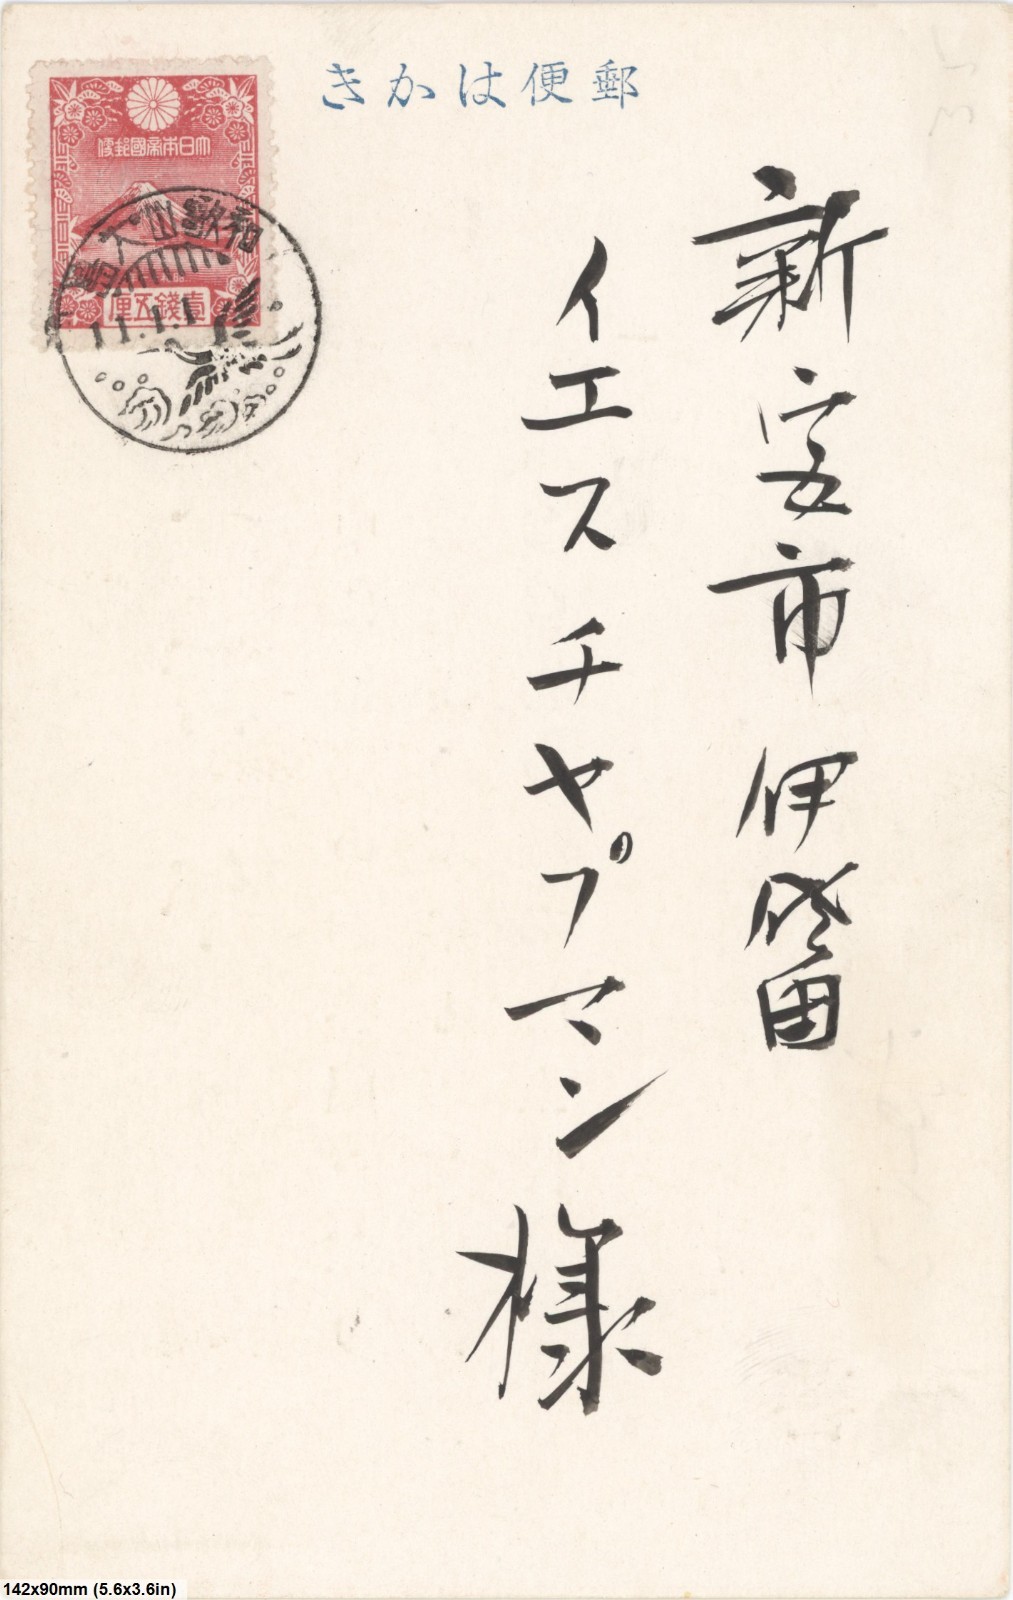 郵便はかき
大日本帝國郵便
壹錢五厘
和歌山
11.1.1
新宮市伊佐田
イエスチヤプマン様
142x90mm (5.6x3.6in)